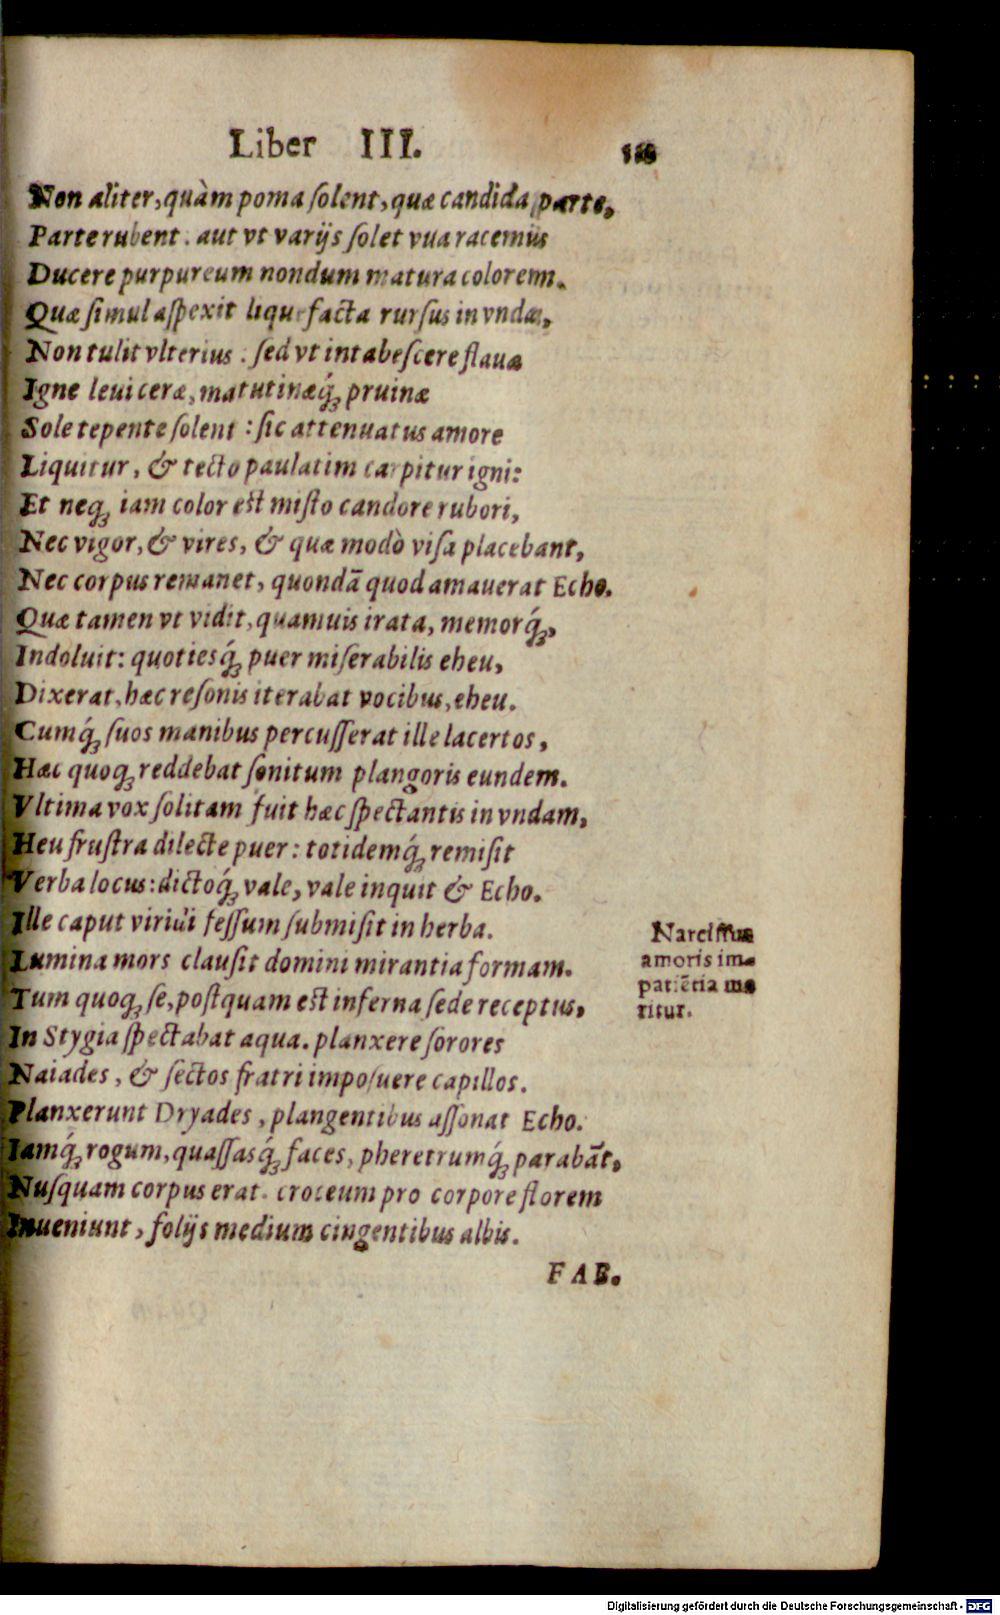 Liber III.
Non aliter, quàm poma ſolent, quæ candida parte,
Parte rubent. aut vt varijs ſolet vua racemis
Ducere purpureum nondum matura colorem.
Quæ ſimul aſpexit liquefacta rurſus in vnda,
Non tulit vlterius: ſed vt intabeſcere flauæ
Igne leui ceræ, matutinæq́ꝫ pruinæ
Sole tepente ſolent: ſic attenuatus amore
Liquitur, & tecto paulatim carpitur igni:
Et neqꝫ iam color eſt miſto candore rubori,
Nec vigor, & vires, & quæ modò viſa placebant,
Nec corpus remanet, quondã quod amauerat Echo.
Quæ tamen vt vidit, quamuis irata, memorq́ꝫ,
Indoluit: quotiesq́ꝫ puer miſerabilis eheu,
Dixerat, hæc reſonis iterabat vocibus, eheu.
Cumq́ꝫ ſuos manibus percuſſerat ille lacertos,
Hæc quoqꝫ reddebat ſonitum plangoris eundem.
Vltima vox ſolitam fuit hæc ſpectantis in vndam,
Heu fruſtra dilecte puer: totidemq́ꝫ remiſit
Verba locus: dictoq́ꝫ vale, vale inquit & Echo.
Ille caput viridi feſſum ſubmiſit in herba.
Lumina mors clauſit domini mirantia formam.
Tum quoqꝫ ſe, poſtquam eſt inferna ſede receptus,
In Stygia ſpectabat aqua. planxere ſorores
Naiades, & ſectos fratri impoſuere capillos.
Planxerunt Dryades, plangentibus aſſonat Echo.
Iamq́ꝫ rogum, quaſſasq́ꝫ faces, pheretrumq́ꝫ parabãt,
Nuſquam corpus erat. croceum pro corpore florem
Inueniunt, folijs medium cingentibus albis.
FAB.
Narciſſus
amoris im-
patiẽtia mo
ritur.
Digitalisierung gefördert durch die Deutsche Forschungsgemeinschaft - DFG